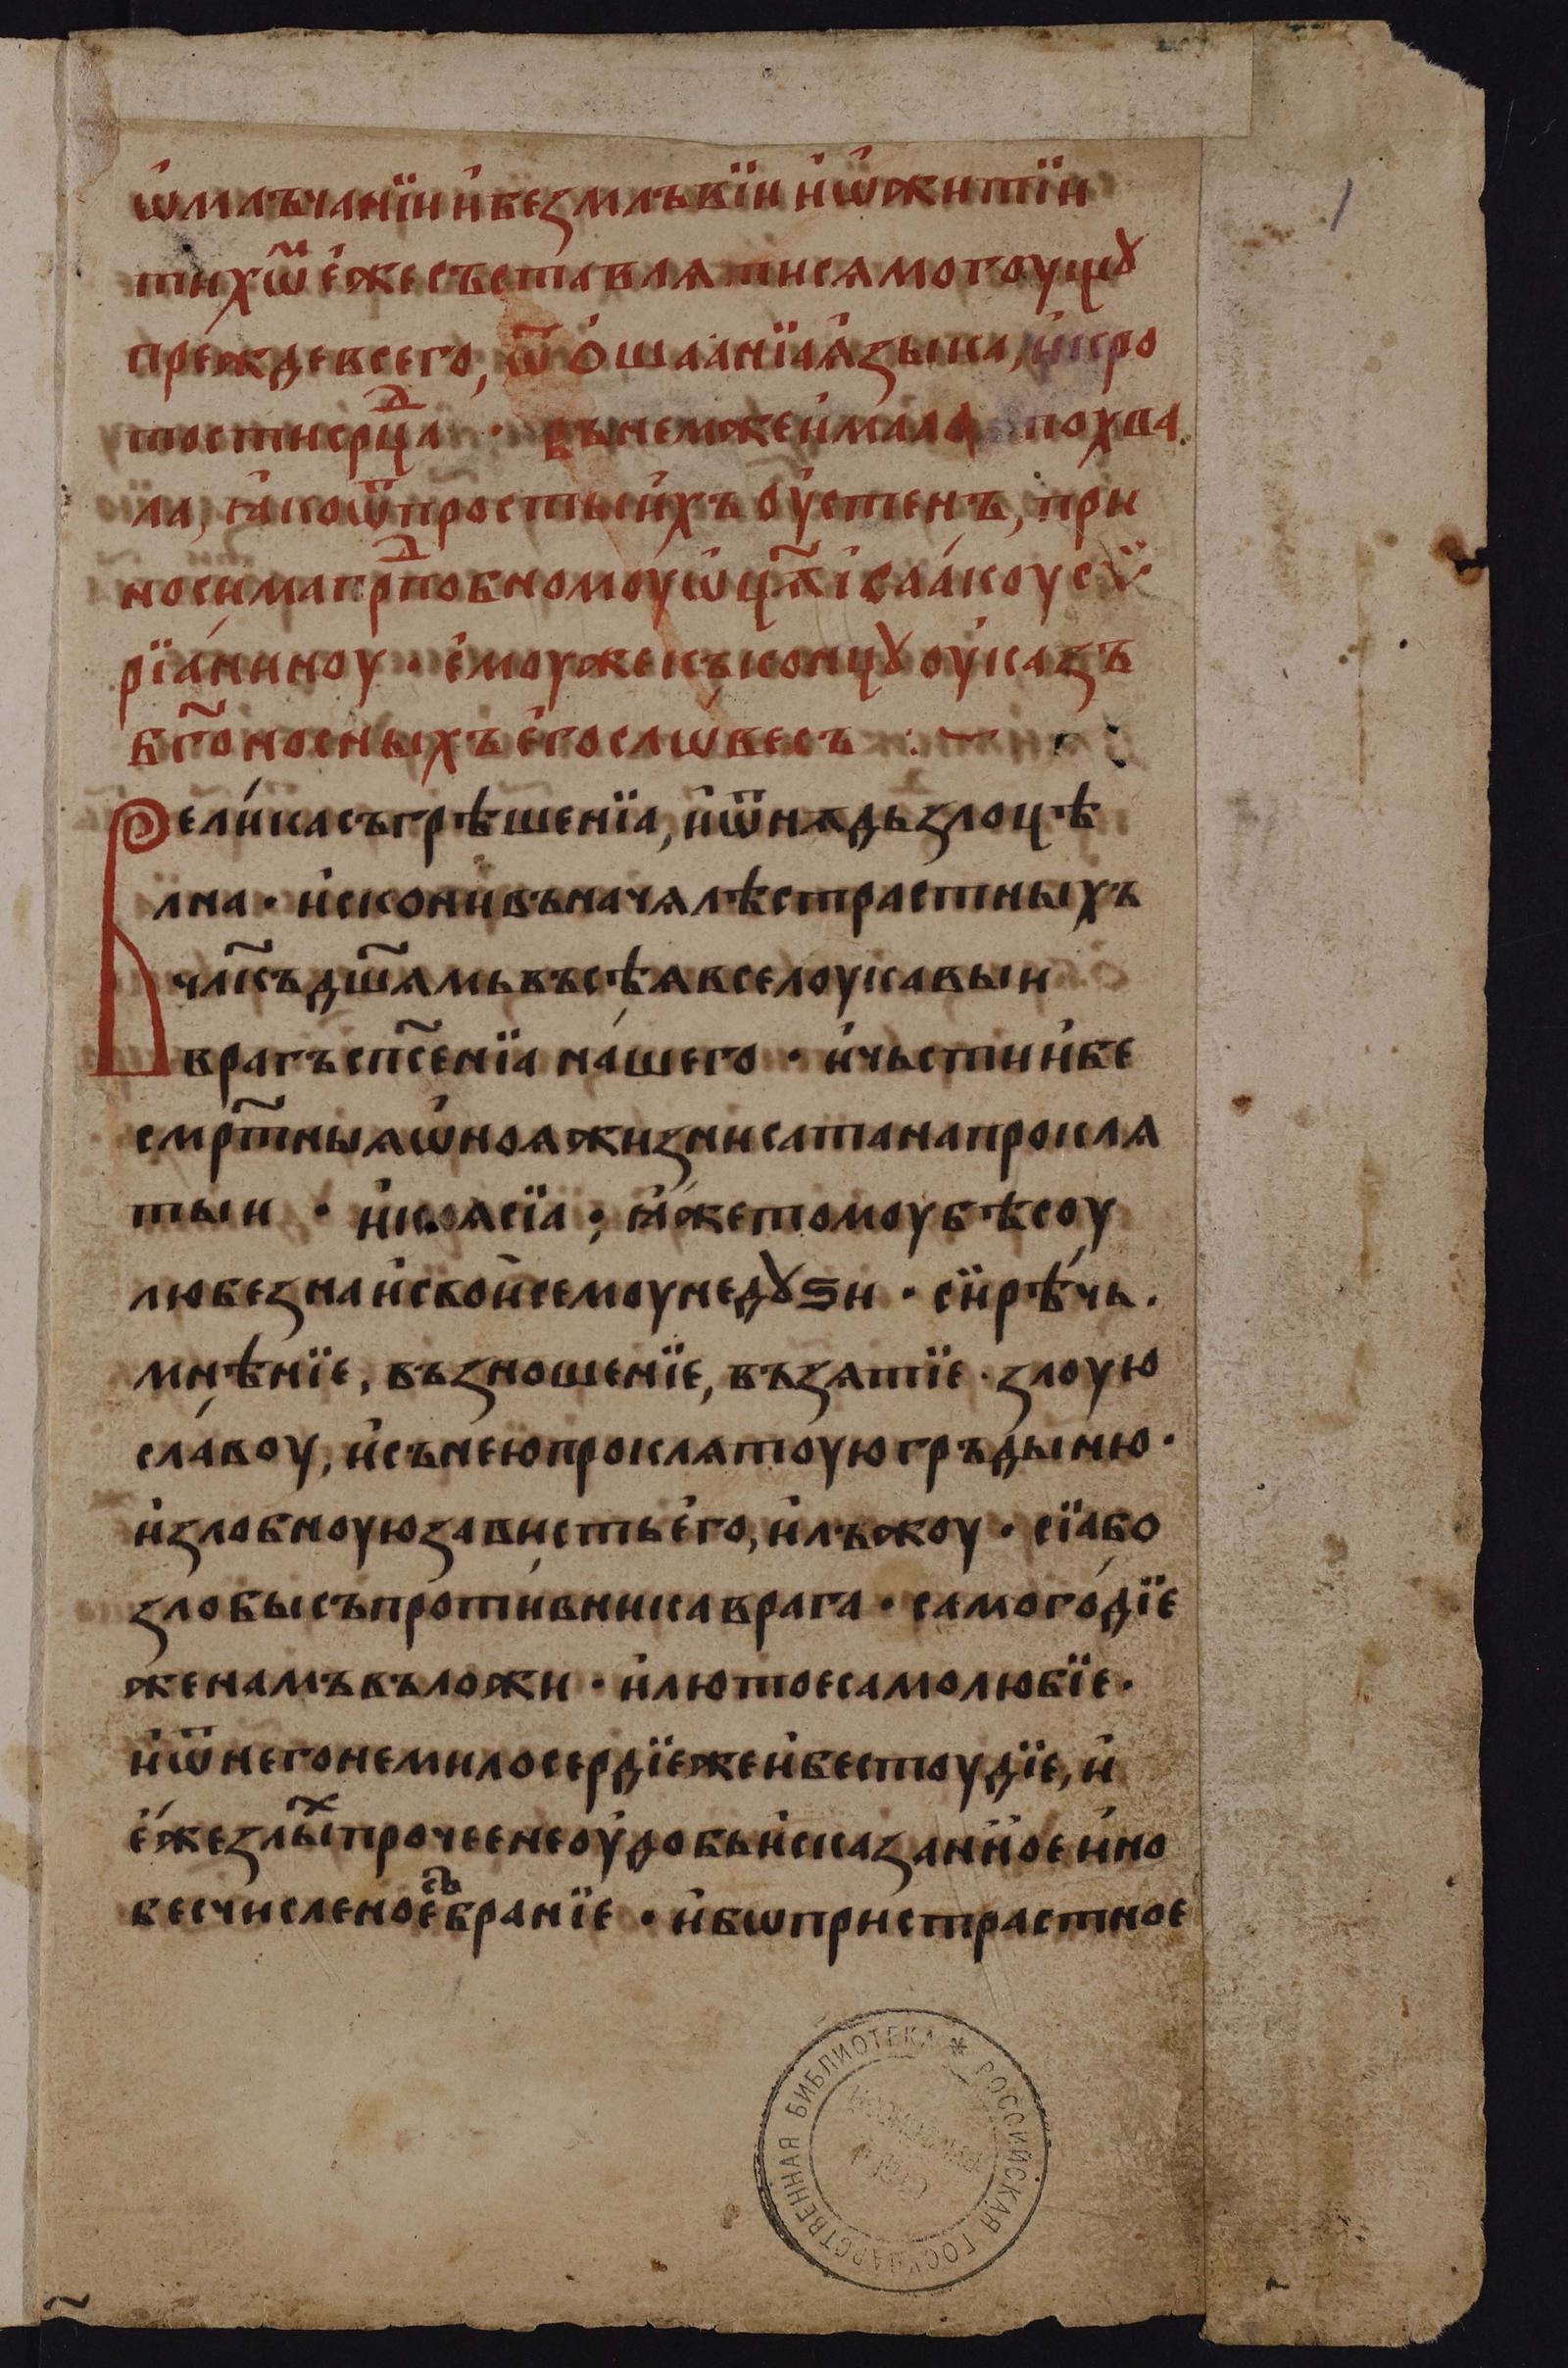 ѡ҆млъчанїи и҆безмлъвїи и҆ѡ҆житїи
тихѡ҆м е҆жесъставлѧтисѧмогоущꙋ
преждевсего, ѿо҆шаанїаѧ҆зыка, и҆кро
тостисрⷣца · вънемжеи҆мала похва
ла, ꙗ҆коѿпростыи҆хъ оу҆стенъ, при
носимапрⷣпобномоуѡ҆ц҃ꙋ і҆саа́коусѵ
рїа́ниноу · е҆моужекъконцꙋ оу҆казъ
бг҃оносныхъе҆гослѡвесъ :~
Вели́касъгрѣшенїа, и҆ѿнѫдьзлоцѣ
лна · и҆сконивъначѧлѣстрастныхъ
чл҃къдш҃ѧмьвъсѣѧвселоукавыи
врагъсп҃сенїа на́шего · и҆чьстии҆бе
смр҃тныѧѡ҆ноѧжизнисатанапроклѧ
тыи · и҆коѧсїа · ꙗ҆жетомоубѣсоу
любезнаи҆свои҆семоунедꙋѕи · си҆рѣ́чь.
мнѣнїе, възношенїе, възѧтїе · злоую
сла́воу, и҆сънеюпроклѧтоуюгръдыню ·
и҆злобноуюзавистье҆го, и҆лъжоу · сїабо
злобысъпроти́вникаврага · самого́дїе
женамъвъложи · и҆лютоесамолюбїе ·
и҆ѿнегонемилосердїежеи҆бестоудїе, и҆
е҆́жезлыⷯпрочеенеоу҆добьи҆сказанн҆оеи҆но
бесчисленоесъбранїе · и҆бѡпристрастное
РОССИЙСКАЯ ГОСУДАРСТВЕННАЯ БИБЛИОТЕКА *
1